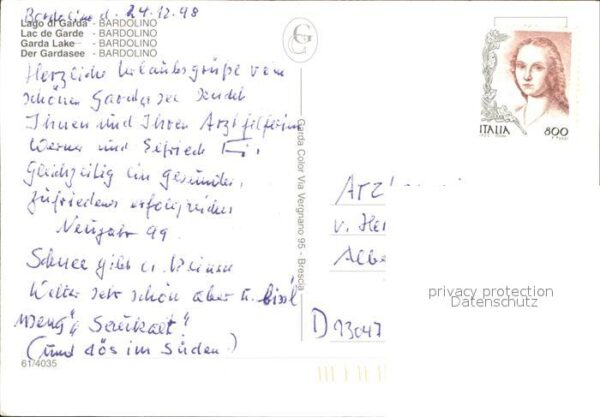 Bardolino d. 24.12.98
Lago di Garda - BARDOLINO
Lac de Garde - BARDOLINO
Garda Lake - BARDOLINO
Der Gardasee - BARDOLINO
Herzliche Urlaubsgrüße vom
schönen Gardasee sendet
Ihnen und Ihren Arzthelferin
Werner und
Gleichzeitig ein gesundes,
zufriedens erfolgreiches
Neujahr 99.
Schnee gibts keinen
Wetter sehr schön aber a bissl
weng "Saukalt"
(und dös im Süden.)
61/4035
Garda Color Via Vergnano 95 - Brescia
ITALIA 800
Arz
v. He
Albe
D 13047
privacy protection
Datenschutz